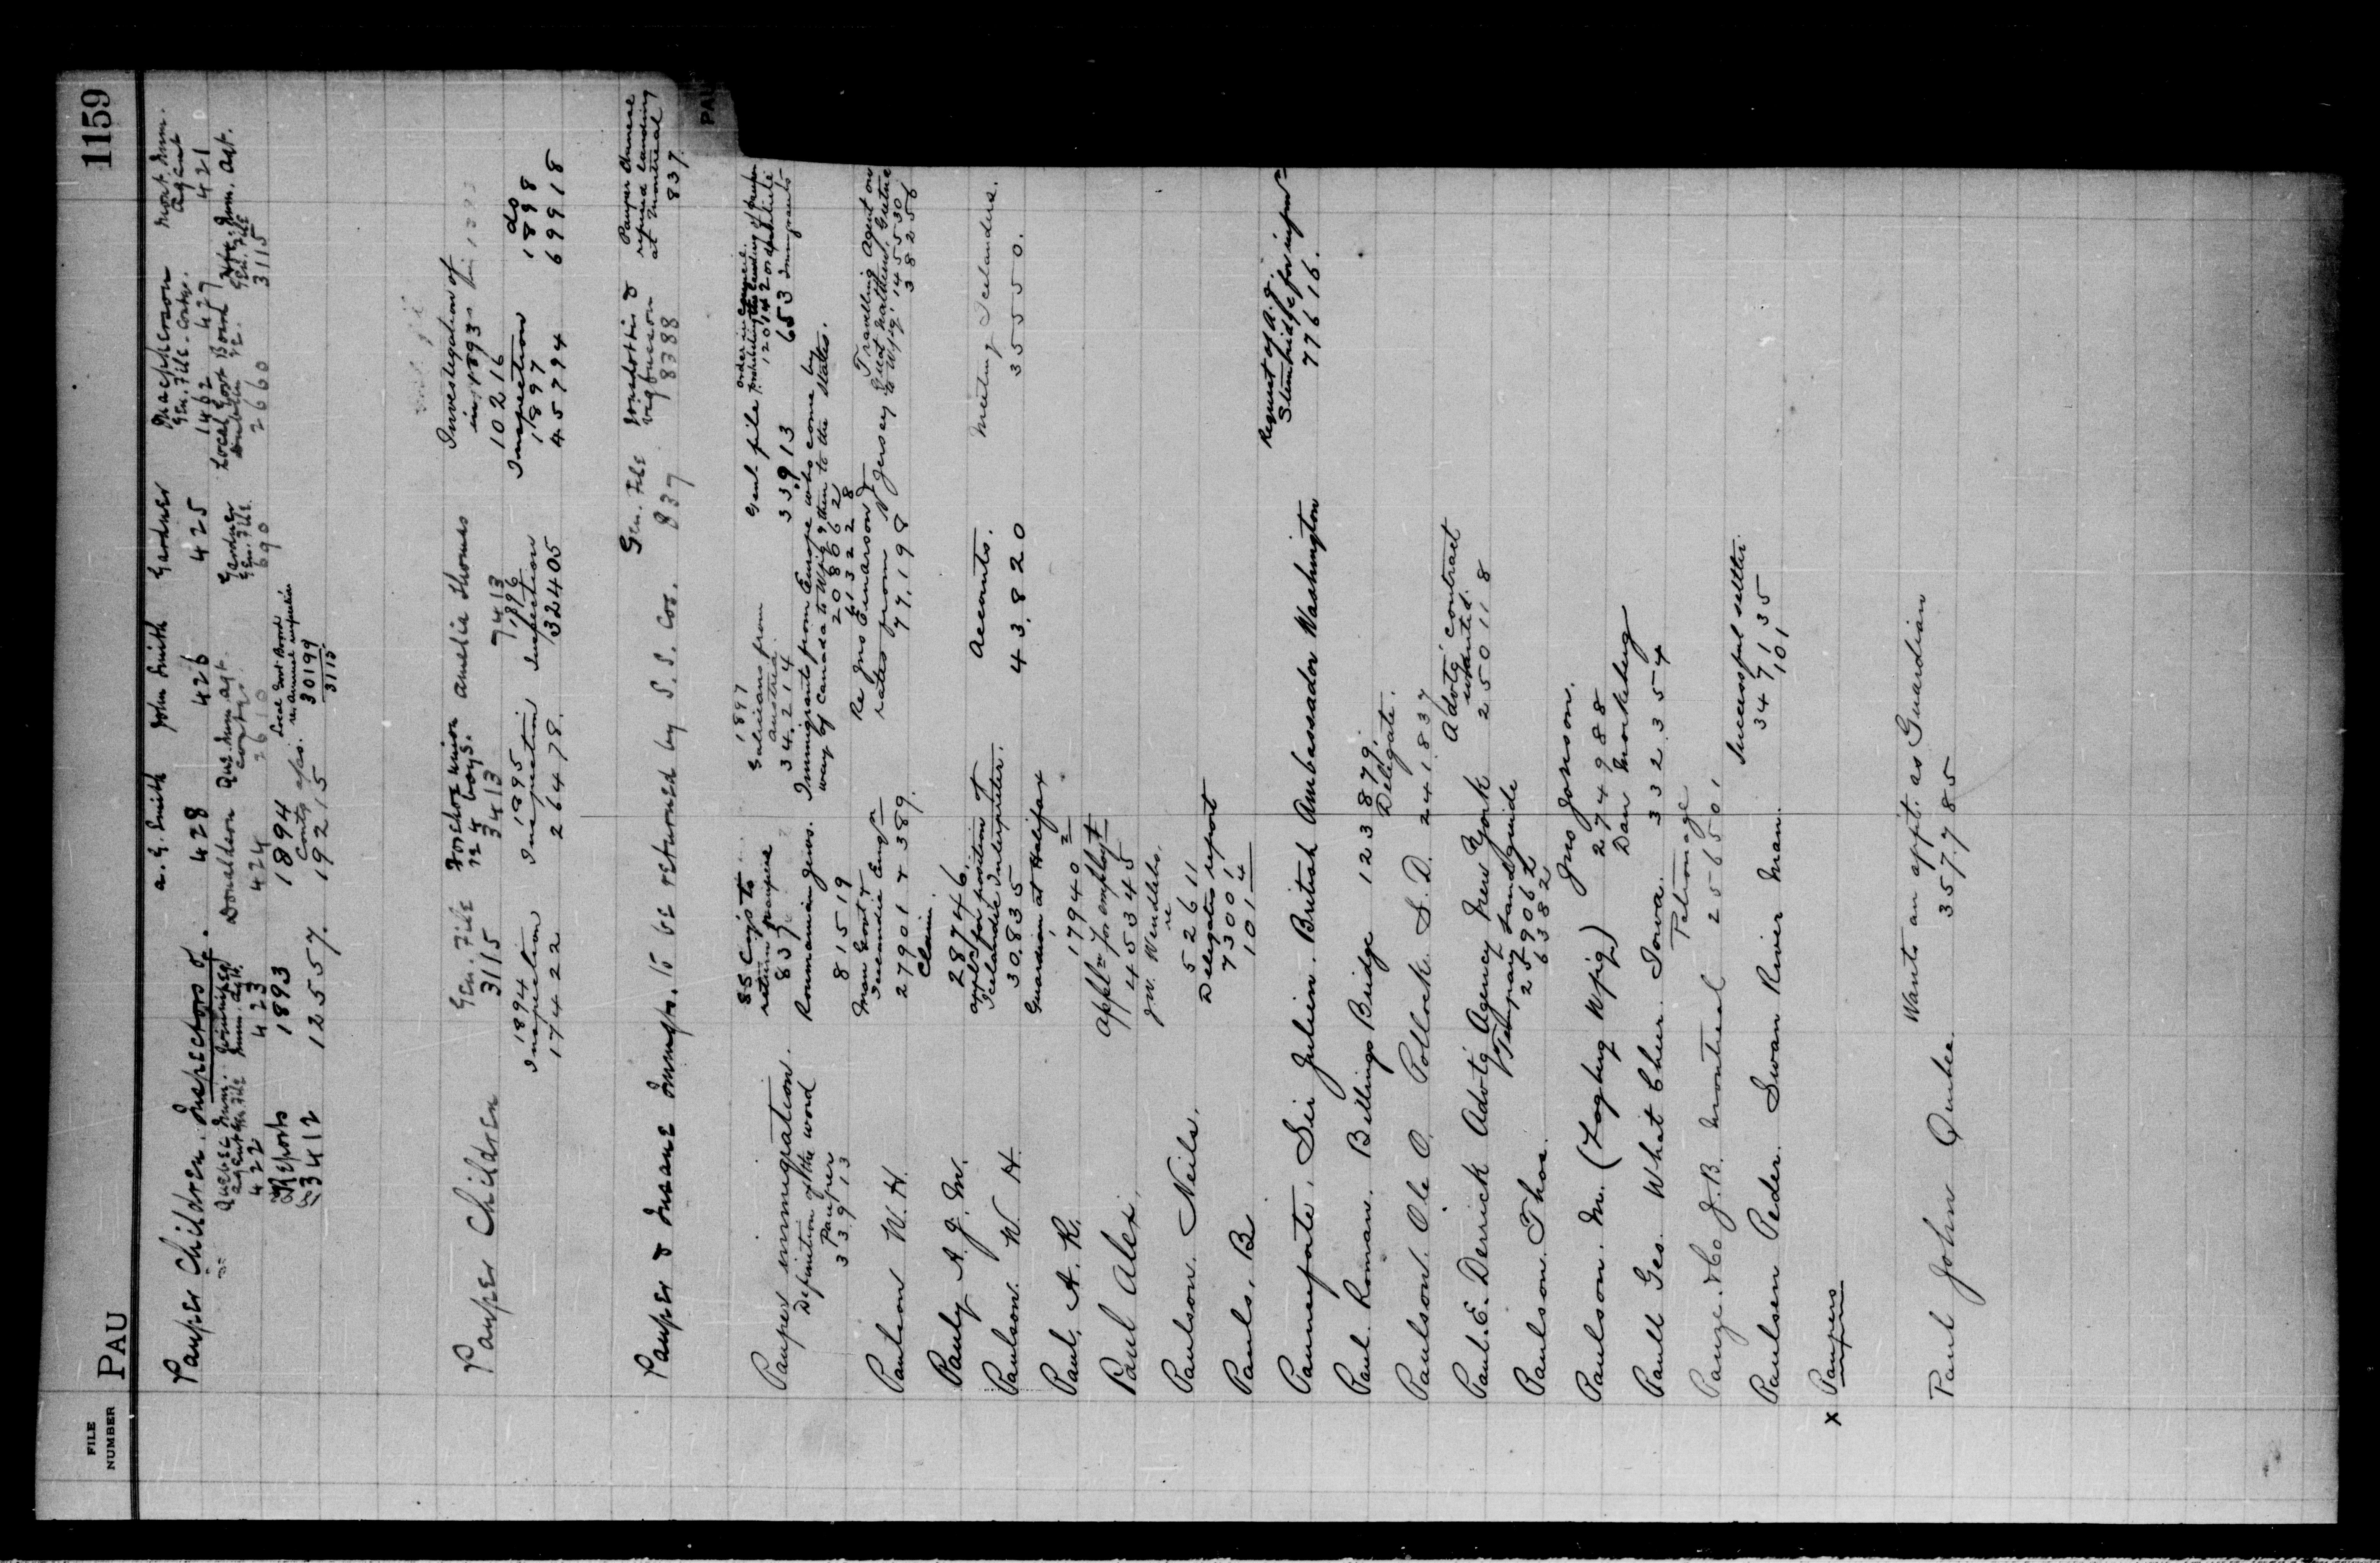 FILE NUMBER
PAU
1159
Pauper Children. Inspectors of.
a. G. Smith 428
John Smith 426
Gardner 425
Macpherson Gen. File. 1462 427
Mont. Imm. Agent 421
Quebec Imm. agent 422
Winnipeg Imm. Agt. 423
Donaldson 424
Que. Imm. agt. 2610
Gardner Gen. File. 690
Local Govt Board Dublin re. 2660
Imm. Agt. Gen. File 3115
Reports 3412
1893 12557.
1894 19215
Local Govt Board re annual inspection 30199
3115
Pauper Children
Gen. File 3115
24 boys. 3413
Amelia Thomas 7413
Investigation of in 1893 10216
1894 Inspection 17422
1895 Inspection 26478.
1896 Inspection 32405
Inspection 1897 45794
do 1898 69918
Pauper & Insane Immgts. to be returned by S.S. Cos.
Gen. File 837
8388
Pauper Chinese refused landing at Montreal 837
Pauper immigration.
Definition of the word Pauper 33913
SS Coys to return paupers 837
1897 Galicians from Austria 34214
Genl. file 33913
Order in Council prohibiting the landing of pauper or destitute Immigrants 653
12014
Roumanian Jews. 81519
Immigrants from Europe who come by way of Canada to Wpig & then to the States.
208062
61322 8
Paulson W. H.
Man Govt & Icelandic Emgn 27901 & 389.
Re Jno Einarson rates from N Jersey to Wpig. 77198
Travelling Agent on Great Northern, Gretna
145530
38256
Pauly A. J. M.
Claim. 28746.
Paulson. W. H
applcn for position of Icelandic Interpreter. 30835
Accounts. 43820
Meeting Icelanders. 35550.
Paul, A. R.
Guardian at Halifax 17940 2
Paul Alex,
Appln for employt 45345
Paulson. Neils.
re 52611
Pauls, B
Delegates report 73001
101 4
Pauncefote, Sir Julien. British Ambassador Washington
Request of A. G. for infor- 77616.
Paul. Roman. Billings Bridge 123879.
Paulson. Ole O. Pollock. S. D. Delegate. 241837
Paul. E. Derrick Advtg Agency New York
Advtg contract wanted. 250118
Paulson. Thos.
Temporary Landguide 259062
6382
Paulson. M. (Logberg Wpig)
Jno Jonson. 274988
Paull Geo. What Cheer. Iowa.
Dan Monkberg 332354
Pauze. & Co J. B. Montreal
Patronage 256501
Paulsen Peder. Swan River Man.
Successful settler 347135
101
x Paupers
Paul John Quebec.
Wants an appt. as Guardian 357785